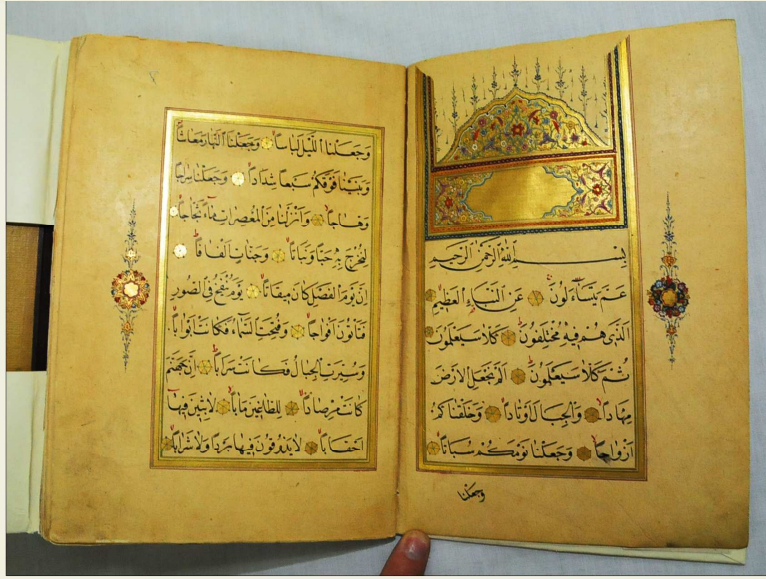 بسم الله الرحمن الرحيم
عم يتساءلون عن النبإ العظيم
الذي هم فيه مختلفون كلا سيعلمون
ثم كلا سيعلمون الم نجعل الارض
مهادا والجبال اوتادا وخلقناكم
ازواجا وجعلنا نومكم سباتا
وجعلنا
وجعلنا الليل لباسا وجعلنا النهار معاشا
وبنينا فوقكم سبعا شدادا وجعلنا سراجا
وهاجا وانزلنا من المعصرات ماء ثجاجا
لنخرج به حبا ونباتا وجنات الفافا
ان يوم الفصل كان ميقاتا يوم ينفخ في الصور
فتأتون افواجا وفتحت السماء فكانت ابوابا
وسيرت الجبال فكانت سرابا ان جهنم
كانت مرصادا للطاغين مابا لابثين فيها
احقابا لا يذوقون فيها بردا ولا شرابا